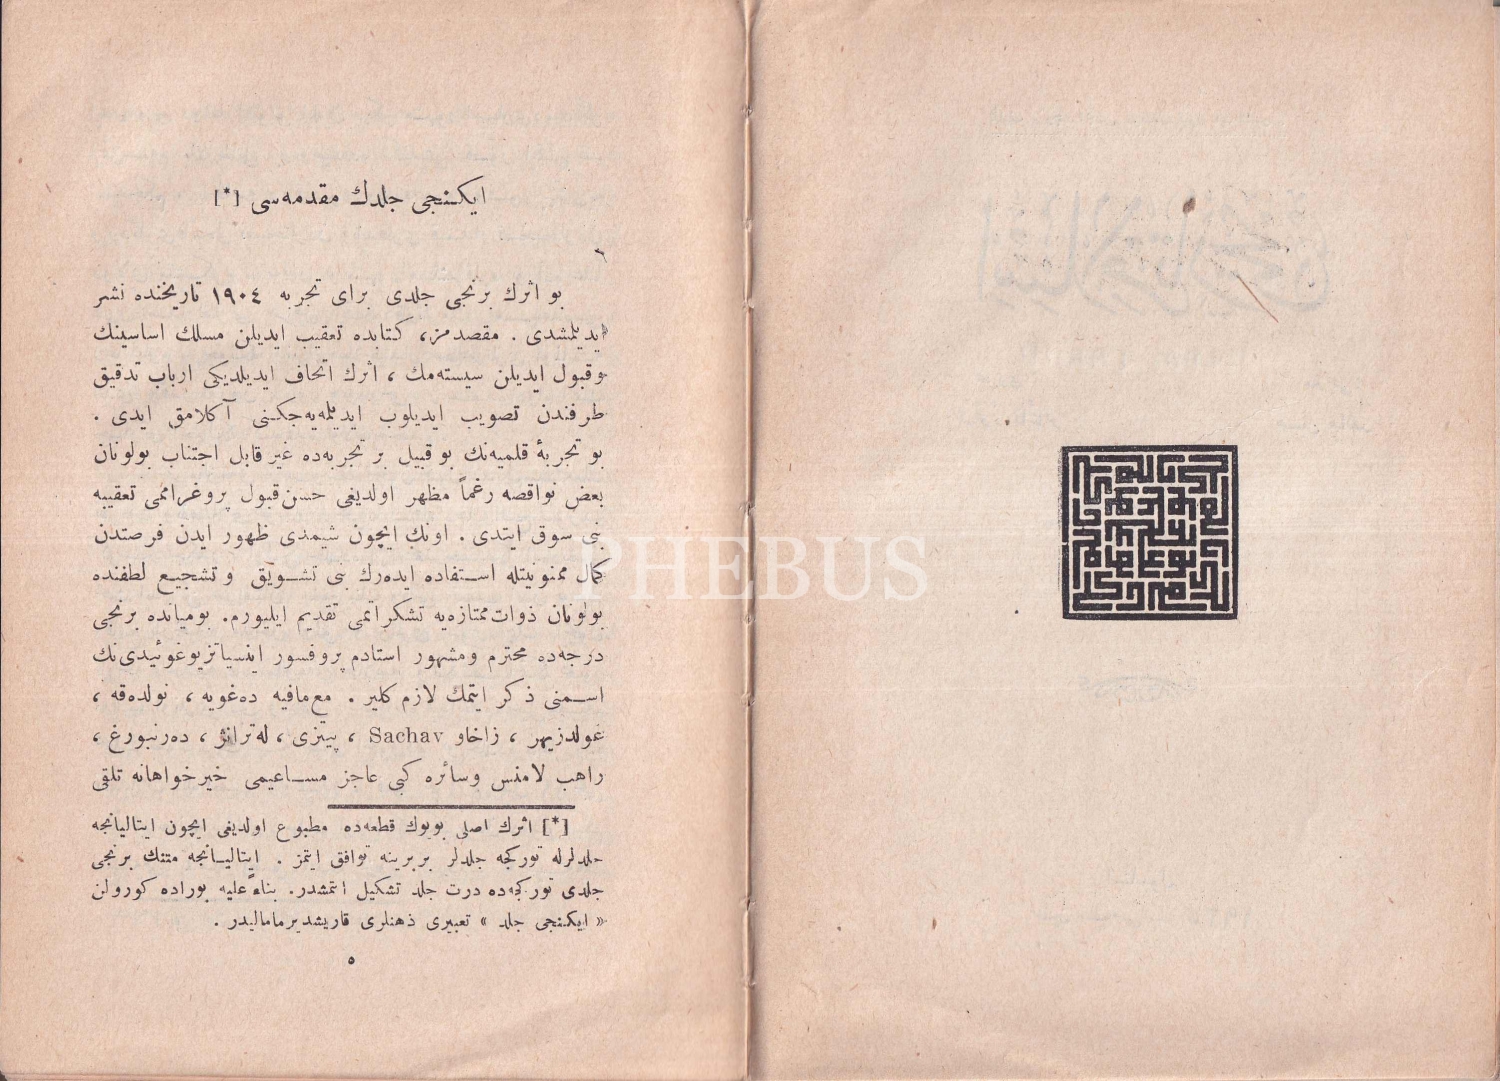 ایکنجی جلدك مقدمه‌سی [*]
بو اثرك برنجی جلدی برای تجربه ١٩٠٤ تاریخنده نشر
ایدیلمشدی . مقصدمز، کتابده تعقیب ایدیلن مسلك اساسینك
وقبول ایدیلن سیسته‌مك ، اثرك اتحاف ایدیلدیکی ارباب تدقیق
طرفندن تصویب ایدیلوب ایدیلمه‌یه‌جکنی آکلامق ایدی .
بو تجربۀ قلمیه‌نك بو قبیل بر تجربه‌ده غیر قابل اجتناب بولونان
بعض نواقصه رغماً مظهر اولدیغی حسن قبول پروغرامی تعقیبه
بنی سوق ایتدی . اونك ایچون شیمدی ظهور ایدن فرصتدن
کمال ممنونیتله استفاده ایده‌رك بنی تشویق و تشجیع لطفنده
بولونان ذوات ممتازه‌یه تشکراتمی تقدیم ایلیورم. بومیانده برنجی
درجه‌ده محترم ومشهور استادم پروفسور اینیاتزیوغوئیدی‌نك
اسمنی ذکر ایتمك لازم کلیر . مع‌مافیه ده‌غویه ، نولده‌قه ،
غولدزیهر ، زاخاو Sachav ، پیتزی ، له‌ترانژ ، ده‌رنبورغ ،
راهب لامنس وسائره کبی عاجز مساعیمی خیرخواهانه تلقی
[*] اثرك اصلی بویوك قطعه‌ده مطبوع اولدیغی ایچون ایتالیانجه
جلدلرله تورکجه جلدلر بربرینه توافق ایتمز . ایتالیانجه متنك برنجی
جلدی تورکجه‌ده درت جلد تشکیل ایتمشدر. بناءً علیه بوراده کورولن
« ایکنجی جلد » تعبیری ذهنلری قاریشدیرمامالیدر .
٥
PHEBUS